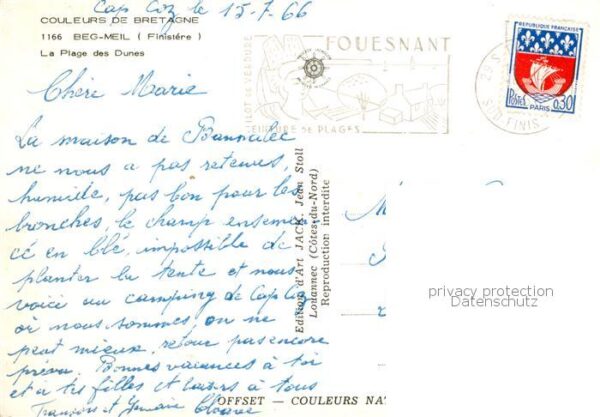 Cap Coz le 15-7-66
COULEURS DE BRETAGNE
1166 BEG-MEIL ( Finistère )
La Plage des Dunes
Chère Marie
La maison de Bannalec
ne nous a pas retenus,
humide, pas bon pour les
bronches, le champ ensemen
cé en blé, impossible de
planter la tente et nous
voici au camping de Cap Coz
où nous sommes, on ne
peut mieux, retour pas encore
prévu. Bonnes vacances à toi
et à tes filles et baisers à tous
François et
FOUESNANT
DE VERDURE
CEINTURE DE PLAGES
SUD FINIS
REPUBLIQUE FRANÇAISE
Postes
PARIS
0,30
Edition d'Art JACK. Jean Stoll
Louannec (Côtes-du-Nord)
Reproduction interdite
privacy protection
Datenschutz
OFFSET — COULEURS NAT